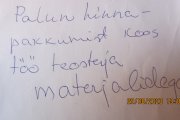 Palun hinna-
pakkumist koos
töö teostaja
materjalidega